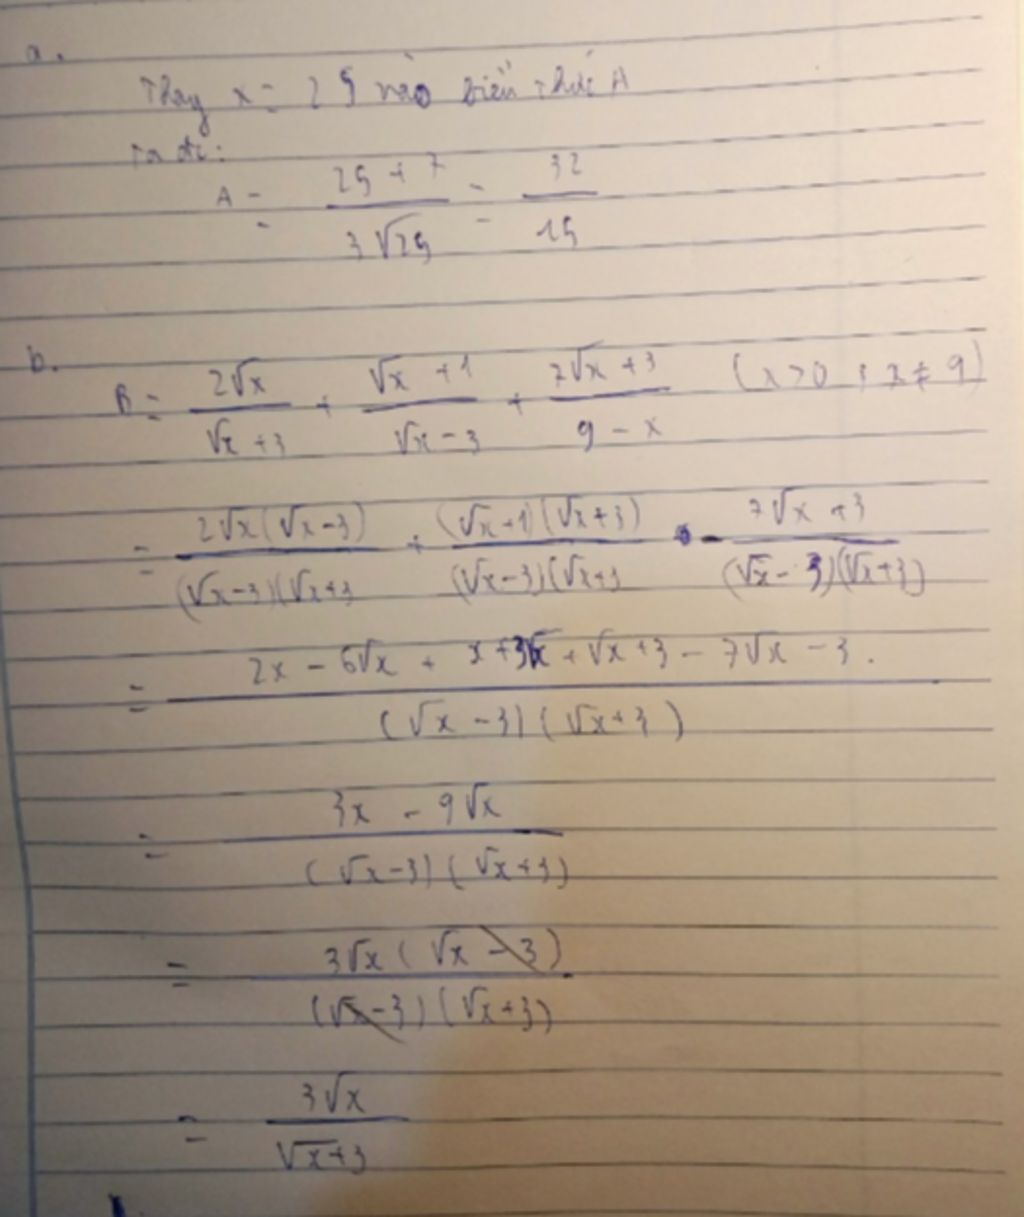 a.
Thay x = 25 vào biểu thức A
Ta đc:
A = (25 + 7)/(3√25) = 32/15
b.
B = (2√x)/(√x + 3) + (√x + 1)/(√x - 3) + (7√x + 3)/(9 - x) (x > 0 ; x ≠ 9)
= (2√x(√x - 3))/((√x - 3)(√x + 3) + ((√x + 1)(√x + 3))/((√x - 3)(√x + 3) - (7√x + 3)/((√x - 3)(√x + 3))
= (2x - 6√x + x + 3√x + √x + 3 - 7√x - 3.)/((√x - 3)(√x + 3))
= (3x - 9√x)/((√x - 3)(√x + 3))
= (3√x(√x - 3))/((√x - 3)(√x + 3))
= (3√x)/(√x + 3)